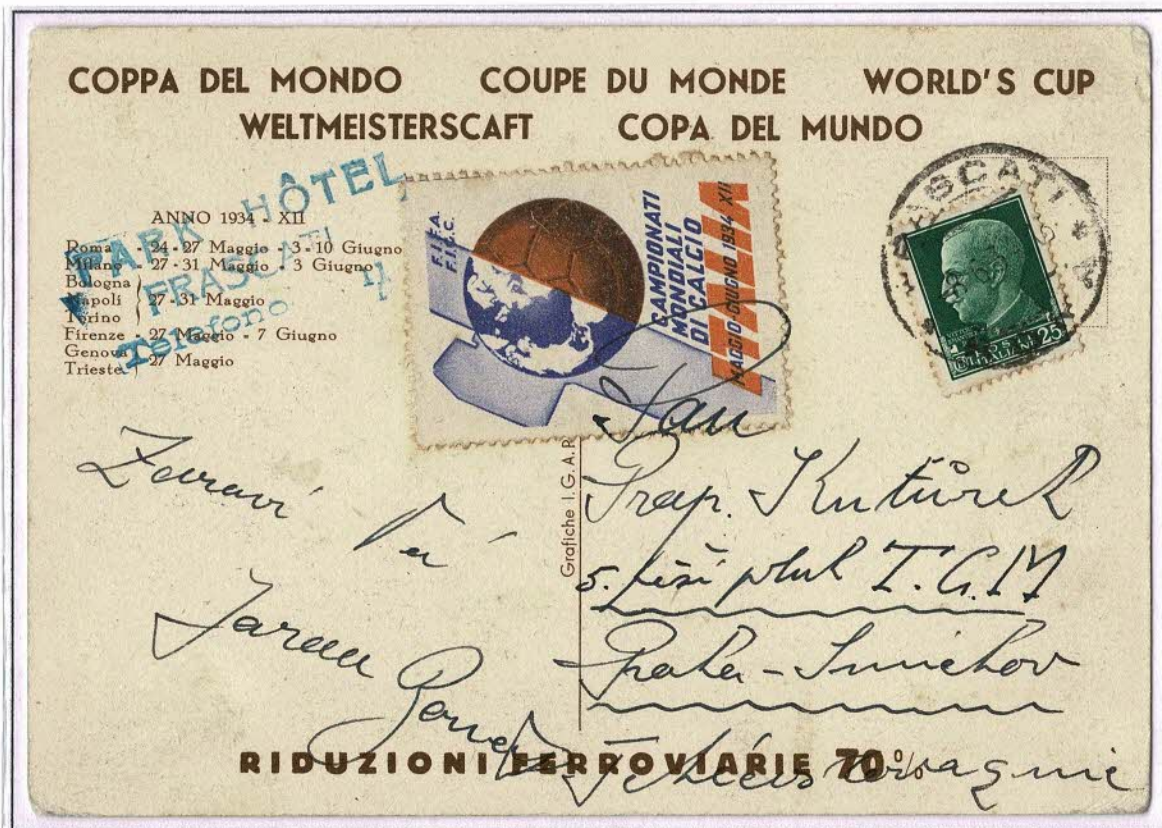 COPPA DEL MONDO COUPE DU MONDE WORLD'S CUP
WELTMEISTERSCAFT COPA DEL MUNDO
PARK HÔTEL
FRASCATI
Telefono 17
ANNO 1934 - XII
Roma - 24 - 27 Maggio - 3 - 10 Giugno
Milano - 27 - 31 Maggio - 3 Giugno
Bologna
Napoli 27 - 31 Maggio
Torino
Firenze - 27 Maggio - 7 Giugno
Genova
Trieste 27 Maggio
F.I.F.A.
F.I.G.C.
CAMPIONATI
MONDIALI
DI CALCIO
MAGGIO-GIUGNO 1934 XII
ITALIA
FRASCATI
POSTE ITALIANE
25
Zdraví Tě
Jarda
Grafiche I.G.A.P.
Pan
Prap. Kutůrek
5. pěší pluk T.G.M
Praha - Smíchov
RIDUZIONI FERROVIARIE 70%